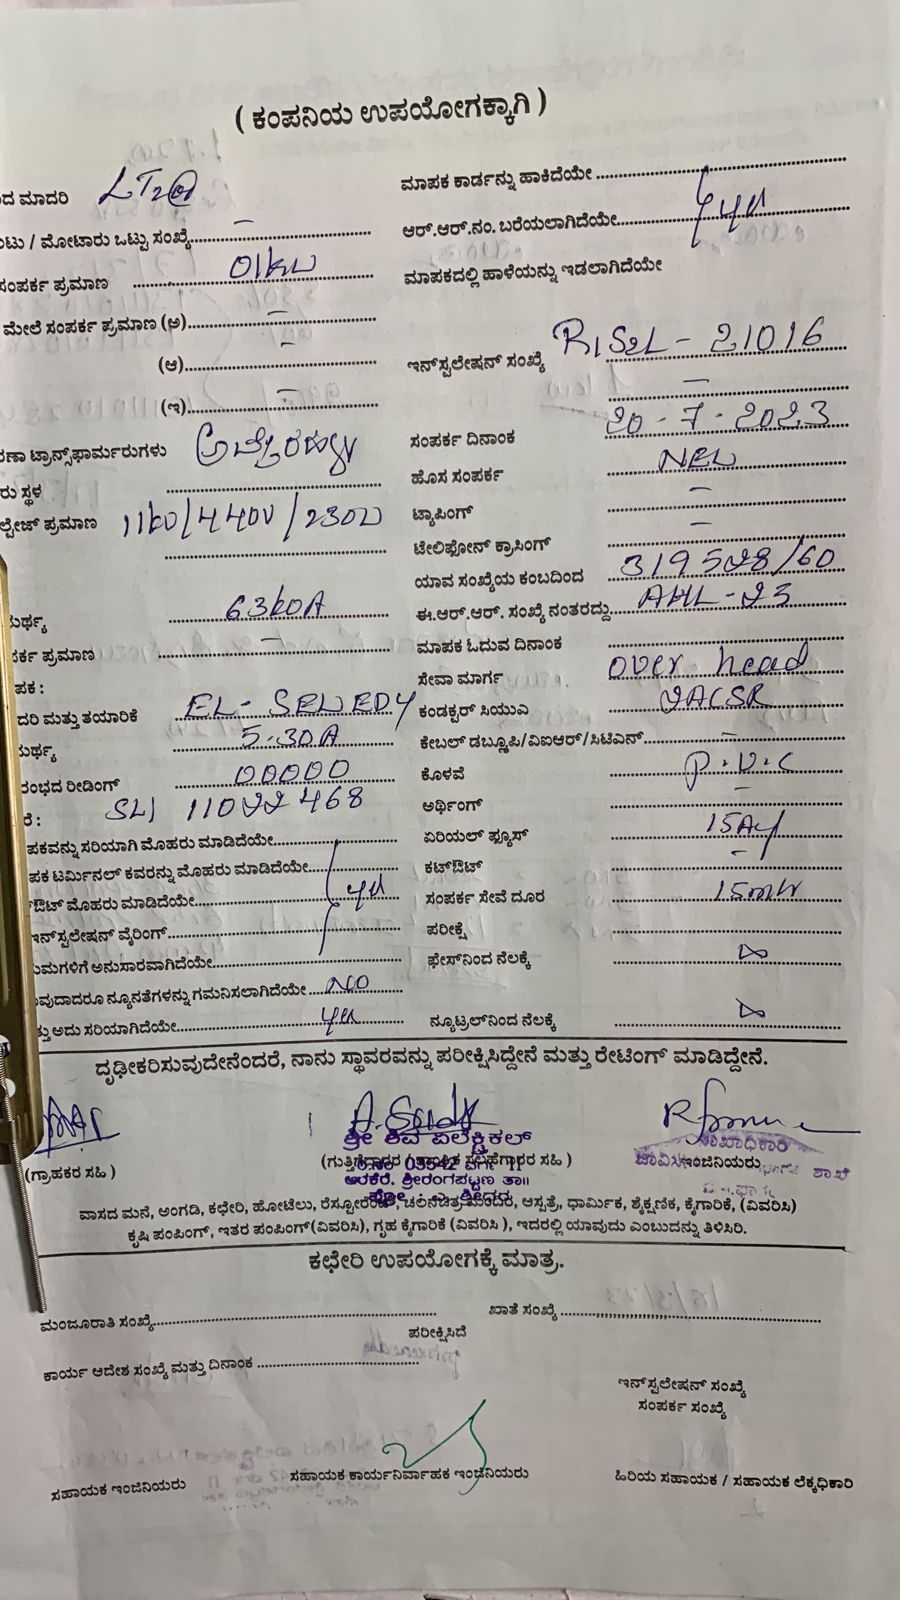 ( ಕಂಪನಿಯ ಉಪಯೋಗಕ್ಕಾಗಿ )
ದ ಮಾದರಿ LT2@ ಮಾಪಕ ಕಾರ್ಡನ್ನು ಹಾಕಿದೆಯೇ
ಟು / ಮೋಟಾರು ಒಟ್ಟು ಸಂಖ್ಯೆ — ಆರ್.ಆರ್.ನಂ. ಬರೆಯಲಾಗಿದೆಯೇ
ಸಂಪರ್ಕ ಪ್ರಮಾಣ 01kw ಮಾಪಕದಲ್ಲಿ ಹಾಳೆಯನ್ನು ಇಡಲಾಗಿದೆಯೇ
ಮೇಲೆ ಸಂಪರ್ಕ ಪ್ರಮಾಣ (ಅ) —
(ಆ) — ಇನ್‌ಸ್ಟಲೇಷನ್ ಸಂಖ್ಯೆ R1S2L - 21016
(ಇ) — —
ರಣಾ ಟ್ರಾನ್ಸ್‌ಫಾರ್ಮರುಗಳು ಸಂಪರ್ಕ ದಿನಾಂಕ 20 - 7 - 2023
ರು ಸ್ಥಳ ಹೊಸ ಸಂಪರ್ಕ NEW
ಲ್ಟೇಜ್ ಪ್ರಮಾಣ 11kv/440v/230v ಟ್ಯಾಪಿಂಗ್ —
ಟೇಲಿಫೋನ್ ಕ್ರಾಸಿಂಗ್ —
ಯಾವ ಸಂಖ್ಯೆಯ ಕಂಬದಿಂದ 319528/60
ಮರ್ಥ್ಯ 63kVA ಈ.ಆರ್.ಆರ್. ಸಂಖ್ಯೆ ನಂತರದ್ದು AHL-23
ರ್ಕ ಪ್ರಮಾಣ — ಮಾಪಕ ಓದುವ ದಿನಾಂಕ
ಪಕ : ಸೇವಾ ಮಾರ್ಗ over head
ದರಿ ಮತ್ತು ತಯಾರಿಕೆ EL- ಕಂಡಕ್ಟರ್ ಸಿಯುಎ 2ACSR
ಮರ್ಥ್ಯ 5-30A ಕೇಬಲ್ ಡಬ್ಲೂಪಿ/ವಿಐಆರ್/ಸಿಟಿಎನ್ —
ರಂಭದ ರೀಡಿಂಗ್ 00000 ಕೊಳವೆ P.V.C
ರೆ : SL 11022468 ಅರ್ಥಿಂಗ್ —
ಪಕವನ್ನು ಸರಿಯಾಗಿ ಮೊಹರು ಮಾಡಿದೆಯೇ ಏರಿಯಲ್ ಫ್ಯೂಸ್ 15A
ಪಕ ಟರ್ಮಿನಲ್ ಕವರನ್ನು ಮೊಹರು ಮಾಡಿದೆಯೇ ಕಟ್‌ಔಟ್ —
್‌ಔಟ್ ಮೊಹರು ಮಾಡಿದೆಯೇ ಸಂಪರ್ಕ ಸೇವೆ ದೂರ
ಇನ್‌ಸ್ಟಲೇಷನ್ ವೈರಿಂಗ್ ಪರೀಕ್ಷೆ
ಯಮಗಳಿಗೆ ಅನುಸಾರವಾಗಿದೆಯೇ ಫೇಸ್‌ನಿಂದ ನೆಲಕ್ಕೆ ∞
ವುದಾದರೂ ನ್ಯೂನತೆಗಳನ್ನು ಗಮನಿಸಲಾಗಿದೆಯೇ NO
ತ್ತು ಅದು ಸರಿಯಾಗಿದೆಯೇ ನ್ಯೂಟ್ರಲ್‌ನಿಂದ ನೆಲಕ್ಕೆ ∞
ದೃಢೀಕರಿಸುವುದೇನೆಂದರೆ, ನಾನು ಸ್ಥಾವರವನ್ನು ಪರೀಕ್ಷಿಸಿದ್ದೇನೆ ಮತ್ತು ರೇಟಿಂಗ್ ಮಾಡಿದ್ದೇನೆ.
ಶ್ರೀ ಶಿವ ಎಲೆಕ್ಟ್ರಿಕಲ್
(ಗ್ರಾಹಕರ ಸಹಿ ) ಸಹಿ ) ಶಾಖಾಧಿಕಾರಿ
ಇಂಜಿನಿಯರು ಶಾಖೆ
ಅರಕೆರೆ, ಶ್ರೀರಂಗಪಟ್ಟಣ ತಾ॥
ವಾಸದ ಮನೆ, ಅಂಗಡಿ, ಕಛೇರಿ, ಹೋಟೆಲು, ರೆಸ್ಟೋರೆಂಟ್, ಚಲನಚಿತ್ರ ಮಂದಿರ, ಆಸ್ಪತ್ರೆ, ಧಾರ್ಮಿಕ, ಶೈಕ್ಷಣಿಕ, ಕೈಗಾರಿಕೆ, (ವಿವರಿಸಿ)
ಕೃಷಿ ಪಂಪಿಂಗ್, ಇತರ ಪಂಪಿಂಗ್(ವಿವರಿಸಿ), ಗೃಹ ಕೈಗಾರಿಕೆ (ವಿವರಿಸಿ ), ಇದರಲ್ಲಿ ಯಾವುದು ಎಂಬುದನ್ನು ತಿಳಿಸಿರಿ.
ಕಛೇರಿ ಉಪಯೋಗಕ್ಕೆ ಮಾತ್ರ.
ಮಂಜೂರಾತಿ ಸಂಖ್ಯೆ ಖಾತೆ ಸಂಖ್ಯೆ
ಪರೀಕ್ಷಿಸಿದೆ
ಕಾರ್ಯ ಆದೇಶ ಸಂಖ್ಯೆ ಮತ್ತು ದಿನಾಂಕ
ಇನ್‌ಸ್ಟಲೇಷನ್ ಸಂಖ್ಯೆ
ಸಂಪರ್ಕ ಸಂಖ್ಯೆ
ಸಹಾಯಕ ಇಂಜಿನಿಯರು ಸಹಾಯಕ ಕಾರ್ಯನಿರ್ವಾಹಕ ಇಂಜಿನಿಯರು ಹಿರಿಯ ಸಹಾಯಕ / ಸಹಾಯಕ ಲೆಕ್ಕಧಿಕಾರಿ